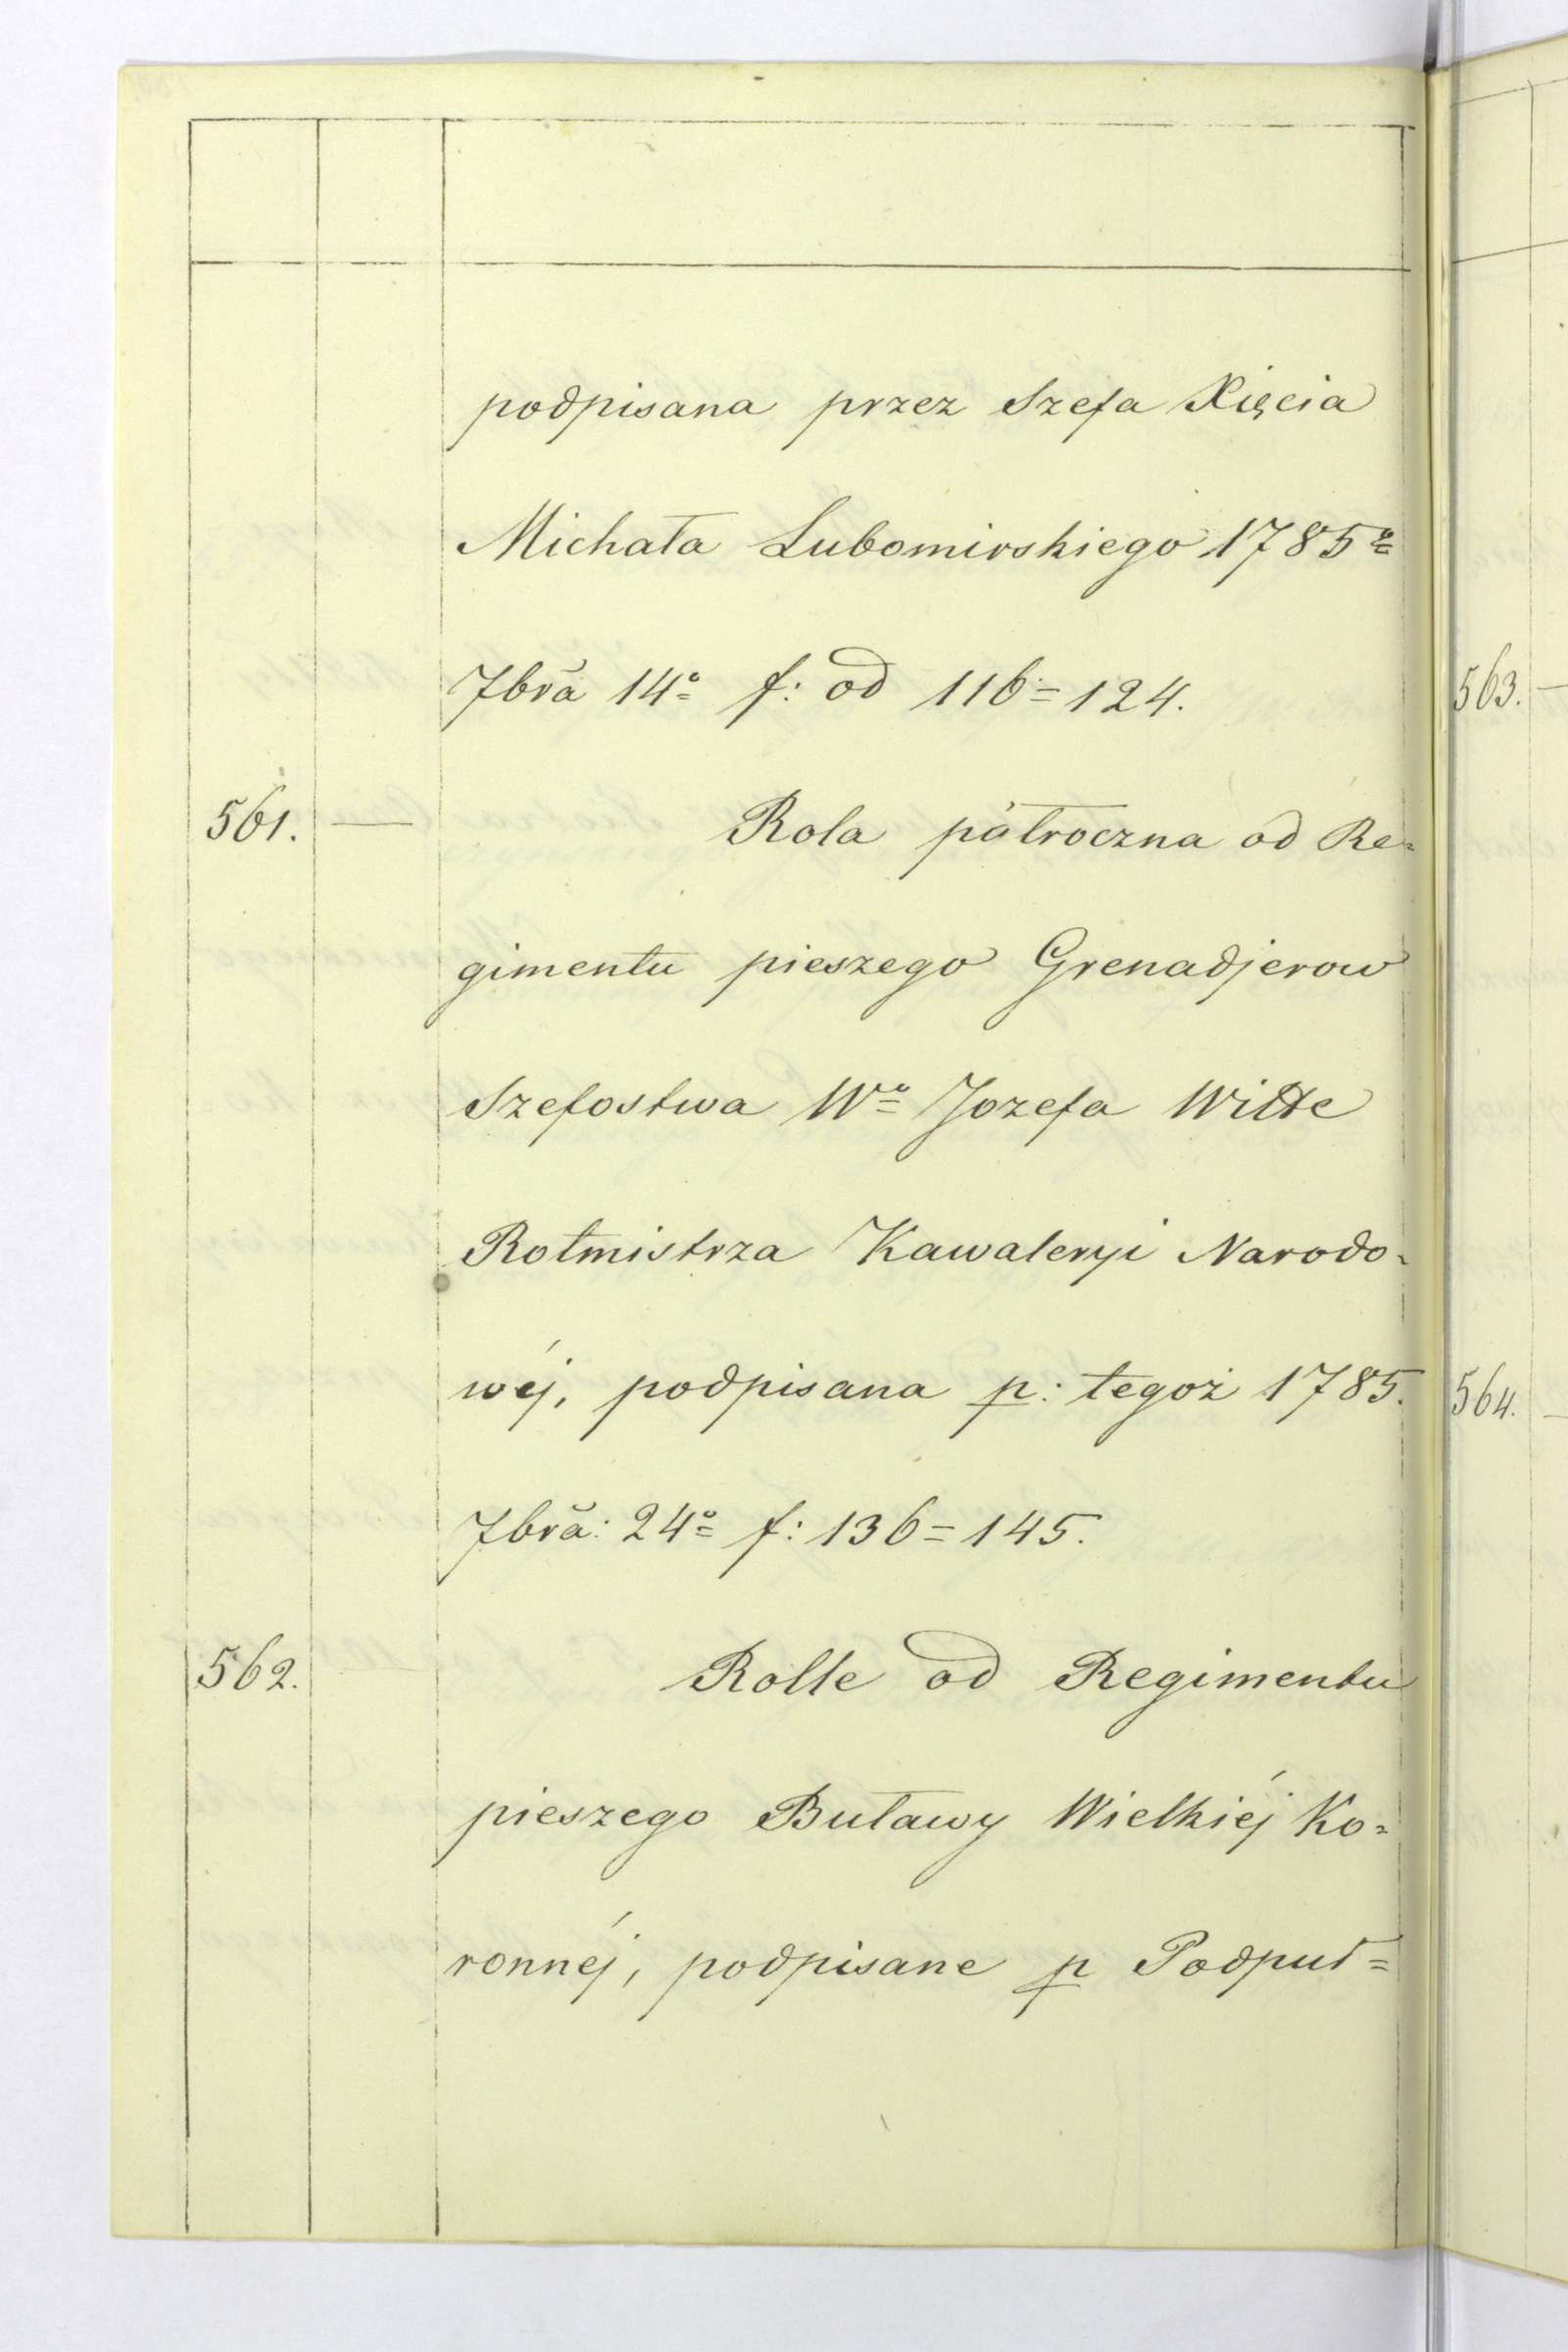 podpisana przez Szefa Xięcia
Michała Lubomirskiego 1785º
7brã 14º f: od 116=124.
561. — Rola półroczna od Re=
gimentu pieszego Grenadjerow
Szefostwa Wº Jozefa Witte
Rotmistrza Kawaleryi Narodo=
wéj, podpisana p: tegoż 1785.
7brã: 24º f: 136=145.
562. Rolle od Regimentu
pieszego Buławy Wielkiéj Ko=
ronnéj, podpisane p Podpuł=
563. —
564. —